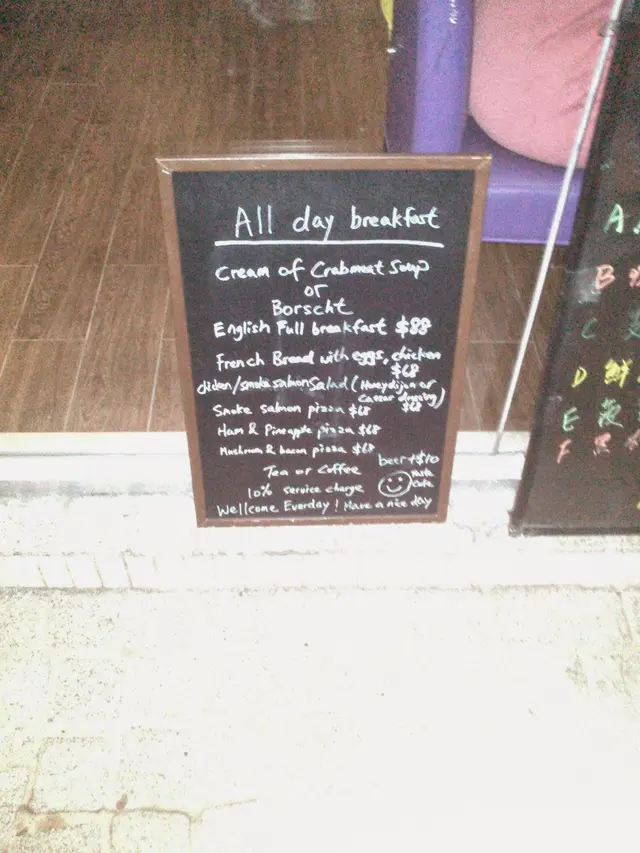 All day breakfast
Cream of Crabmeat Soup
or
Borscht
English Full breakfast $88
French Bread with eggs, chicken
$68
chicken/smoke salmon Salad (Honeydijon or
Caesar dressing)
$68
Smoke salmon pizza $68
Ham & Pineapple pizza $68
Mushroom & bacon pizza $68
beer+$10
Tea or Coffee
10% service charge
Cafe
Wellcome Everday! Have a nice day
A
B
C
D 鮮
E
F